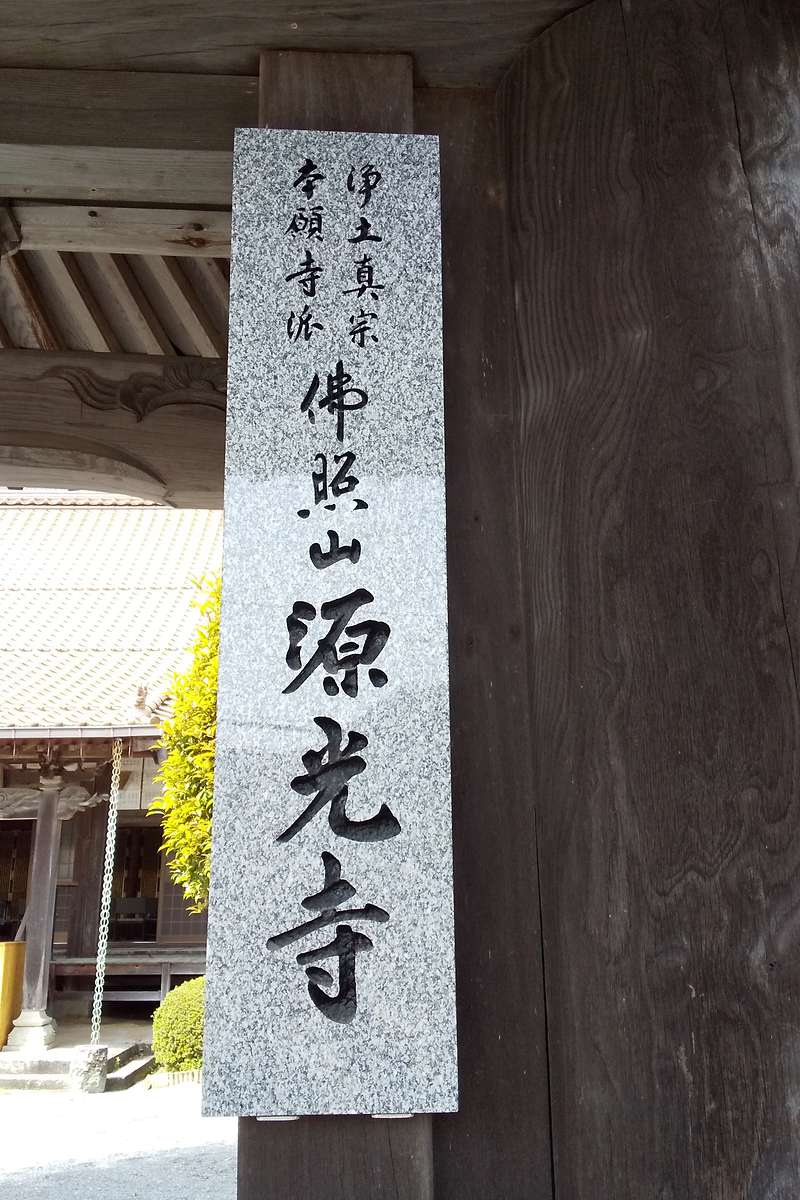 浄土真宗
本願寺派
佛照山源光寺